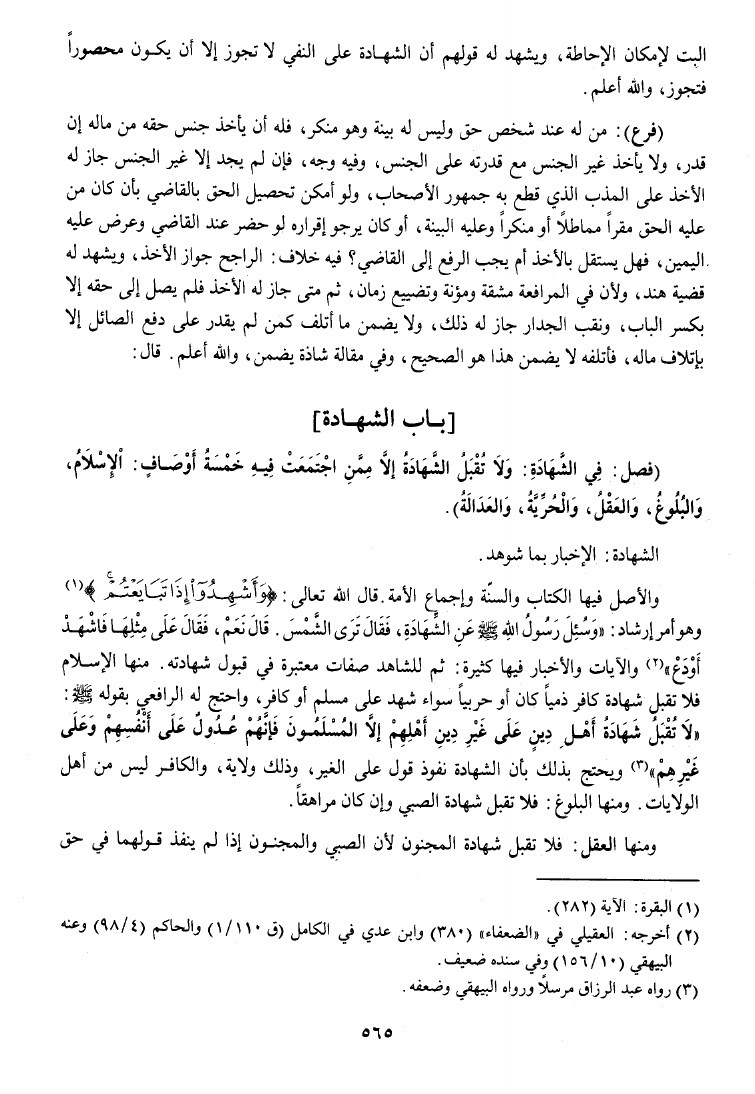 البت لإمكان الإحاطة، ويشهد له قولهم أن الشهادة على النفي لا تجوز إلا أن يكون محصوراً
فتجوز، والله أعلم.
(فرع): من له عند شخص حق وليس له بينة وهو منكر، فله أن يأخذ جنس حقه من ماله إن
قدر، ولا يأخذ غير الجنس مع قدرته على الجنس، وفيه وجه، فإن لم يجد إلا غير الجنس جاز له
الأخذ على المذب الذي قطع به جمهور الأصحاب، ولو أمكن تحصيل الحق بالقاضي بأن كان من
عليه الحق مقراً مماطلاً أو منكراً وعليه البينة، أو كان يرجو إقراره لو حضر عند القاضي وعرض عليه
اليمين، فهل يستقل بالأخذ أم يجب الرفع إلى القاضي؟ فيه خلاف: الراجح جواز الأخذ، ويشهد له
قضية هند، ولأن في المرافعة مشقة ومؤنة وتضييع زمان، ثم متى جاز له الأخذ فلم يصل إلى حقه إلا
بكسر الباب، ونقب الجدار جاز له ذلك، ولا يضمن ما أتلف كمن لم يقدر على دفع الصائل إلا
بإتلاف ماله، فأتلفه لا يضمن هذا هو الصحيح، وفي مقالة شاذة يضمن، والله أعلم. قال:
[باب الشهادة]
(فصل: فِي الشَّهَادَةِ: وَلَا تُقْبَلُ الشَّهَادَةُ إلَّا مِمَّنِ اجْتَمَعَتْ فِيهِ خَمْسَةُ أَوْصَافٍ: الْإِسْلَامُ،
وَالبُلُوغُ، وَالعَقْلُ، وَالْحُرِّيَّةُ، وَالعَدَالَةُ).
الشهادة: الإخبار بما شوهد.
والأصل فيها الكتاب والسنّة وإجماع الأمة. قال الله تعالى: ﴿وَأَشْهِدُوٓاْ إِذَا تَبَايَعْتُمْ ۚ﴾(١)
وهو أمر إرشاد: «وَسُئِلَ رَسُولُ اللهِ ﷺ عَنِ الشَّهَادَةِ، فَقَالَ تَرَى الشَّمْسَ. قَالَ نَعَمْ، فَقَالَ عَلَى مِثْلِهَا فَاشْهَدْ
أَوْدَعْ»(٢) والآيات والأخبار فيها كثيرة: ثم للشاهد صفات معتبرة في قبول شهادته. منها الإسلام
فلا تقبل شهادة كافر ذمياً كان أو حربياً سواء شهد على مسلم أو كافر، واحتج له الرافعي بقوله ﷺ:
«لَا تُقْبَلُ شَهَادَةُ أَهْلِ دِينٍ عَلَى غَيْرِ دِينِ أَهْلِهِمْ إلَّا المُسْلَمُونَ فَإِنَّهُمْ عُدُولٌ عَلَى أَنْفُسِهِمْ وَعَلَى
غَيْرِهِمْ»(٣) ويحتج بذلك بأن الشهادة نفوذ قول على الغير، وذلك ولاية، والكافر ليس من أهل
الولايات. ومنها البلوغ: فلا تقبل شهادة الصبي وإن كان مراهقاً.
ومنها العقل: فلا تقبل شهادة المجنون لأن الصبي والمجنون إذا لم ينفذ قولهما في حق
(١) البقرة: الآية (٢٨٢).
(٢) أخرجه: العقيلي في «الضعفاء» (٣٨٠) وابن عدي في الكامل (ق ١/١١٠) والحاكم (٩٨/٤) وعنه
البيهقي (١٥٦/١٠) وفي سنده ضعيف.
(٣) رواه عبد الرزاق مرسلاً ورواه البيهقي وضعفه.
٥٦٥